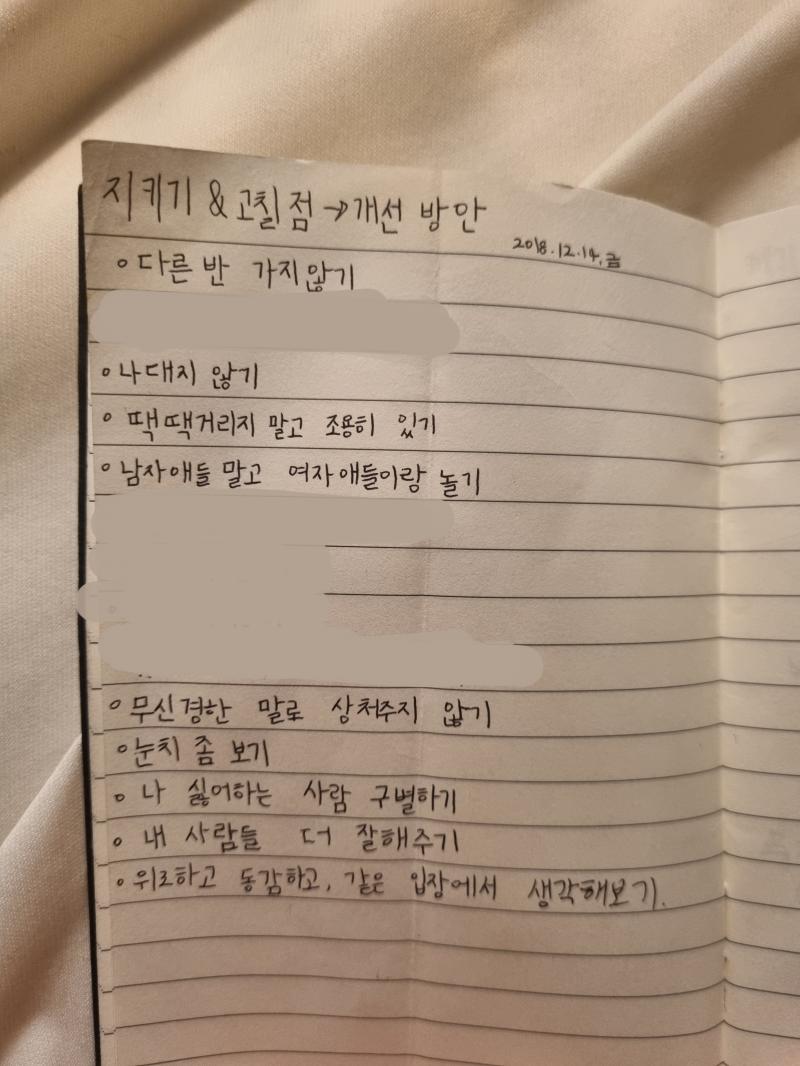 지키기 & 고칠점 → 개선 방안
2018.12.14.금
◦ 다른 반 가지않기
◦ 나대지 않기
◦ 땍땍거리지 말고 조용히 있기
◦ 남자애들 말고 여자애들이랑 놀기
◦ 무신경한 말로 상처주지 않기
◦ 눈치 좀 보기
◦ 나 싫어하는 사람 구별하기
◦ 내 사람들 더 잘해주기
◦ 위로하고 동감하고, 같은 입장에서 생각해보기.